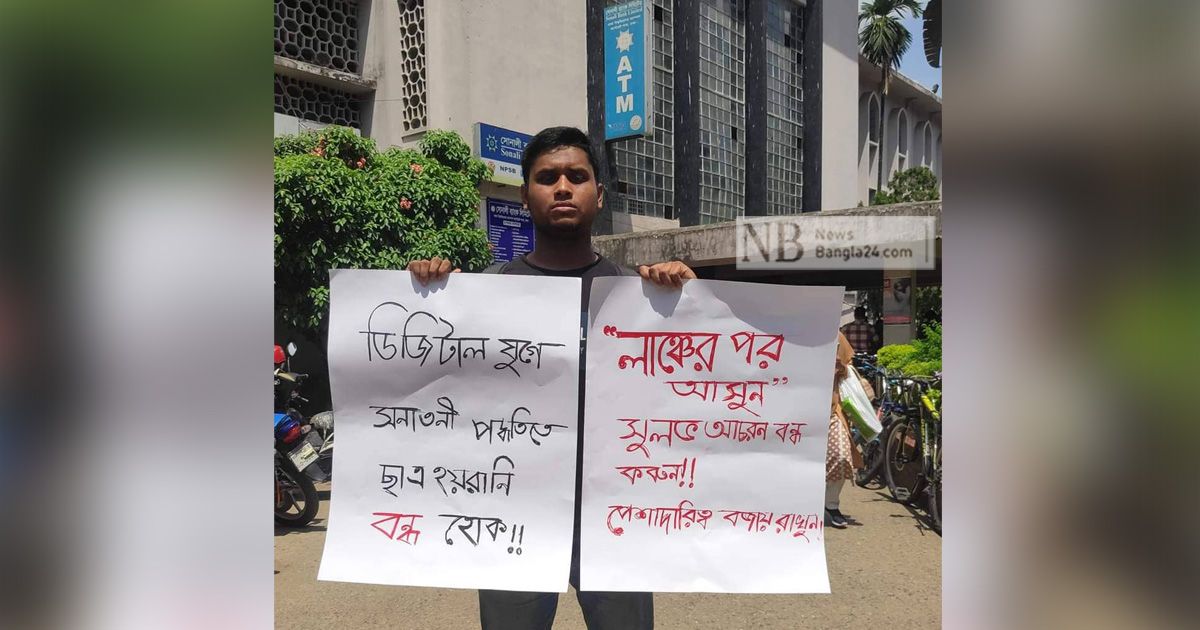 সোনালী
Sonali
NPSB
সোনালী ব্যাংক লিমিটেড
Sonali Bank Limited
ATM
NB News
Bangla24.com
ডিজিটাল যুগে
সনাতনী পদ্ধতিতে
ছাত্র হয়রানি
বন্ধ হোক!!
“লাঞ্চের পর
আসুন”
সুলভ আচরন বন্ধ
করুন!!
পেশাদারিত্ব বজায় রাখুন!